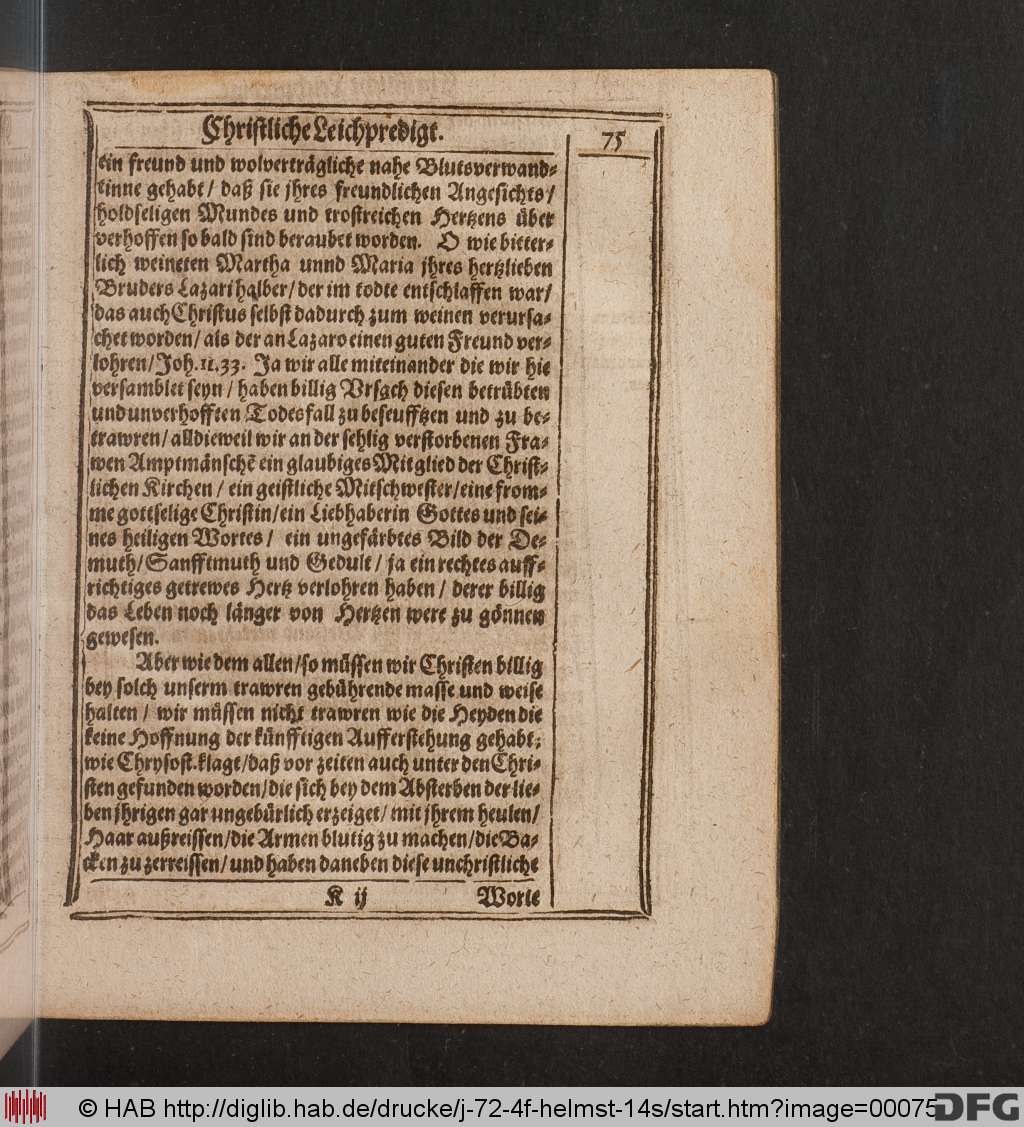 Christliche Leichpredigt.
75
ein freund und wolverträgliche nahe Blutsverwand-
tinne gehabt/ daß sie jhres freundlichen Angesichts/
holdseligen Mundes und trostreichen Hertzens über
verhoffen so bald sind beraubet worden. O wie bitter-
lich weineten Martha unnd Maria jhres hertzlieben
Bruders Lazari halber/ der im todte entschlaffen war/
das auch Christus selbst dadurch zum weinen verursa-
chet worden/ als der an Lazaro einen guten Freund ver-
lohren/ Joh. 11. 33. Ja wir alle miteinander die wir hie
versamblet seyn/ haben billig Vrsach diesen betrübten
und unverhofften Todesfall zu beseufftzen und zu be-
trawren/ alldieweil wir an der sehlig verstorbenen Fra-
wen Amptmänschẽ ein glaubiges Mitglied der Christ-
lichen Kirchen/ ein geistliche Mitschwester/ eine from-
me gottselige Christin/ ein Liebhaberin Gottes und sei-
nes heiligen Wortes/ ein ungefärbtes Bild der De-
muth/ Sanfftmuth und Gedult/ ja ein rechtes auff-
richtiges getrewes Hertz verlohren haben/ derer billig
das Leben noch länger von Hertzen were zu gönnen
gewesen.
Aber wie dem allen/ so müssen wir Christen billig
bey solch unserm trawren gebührende masse und weise
halten/ wir müssen nicht trawren wie die Heyden die
keine Hoffnung der künfftigen Aufferstehung gehabt;
wie Chrysost. klagt/ daß vor zeiten auch unter den Chri-
sten gefunden worden/ die sich bey dem Absterben der lie-
ben jhrigen gar ungebürlich erzeiget/ mit jhrem heulen/
Haar außreissen/ die Armen blutig zu machen/ die Ba-
cken zu zerreissen/ und haben daneben diese unchristliche
K ij
Worte
© HAB http://diglib.hab.de/drucke/j-72-4f-helmst-14s/start.htm?image=00075
DFG